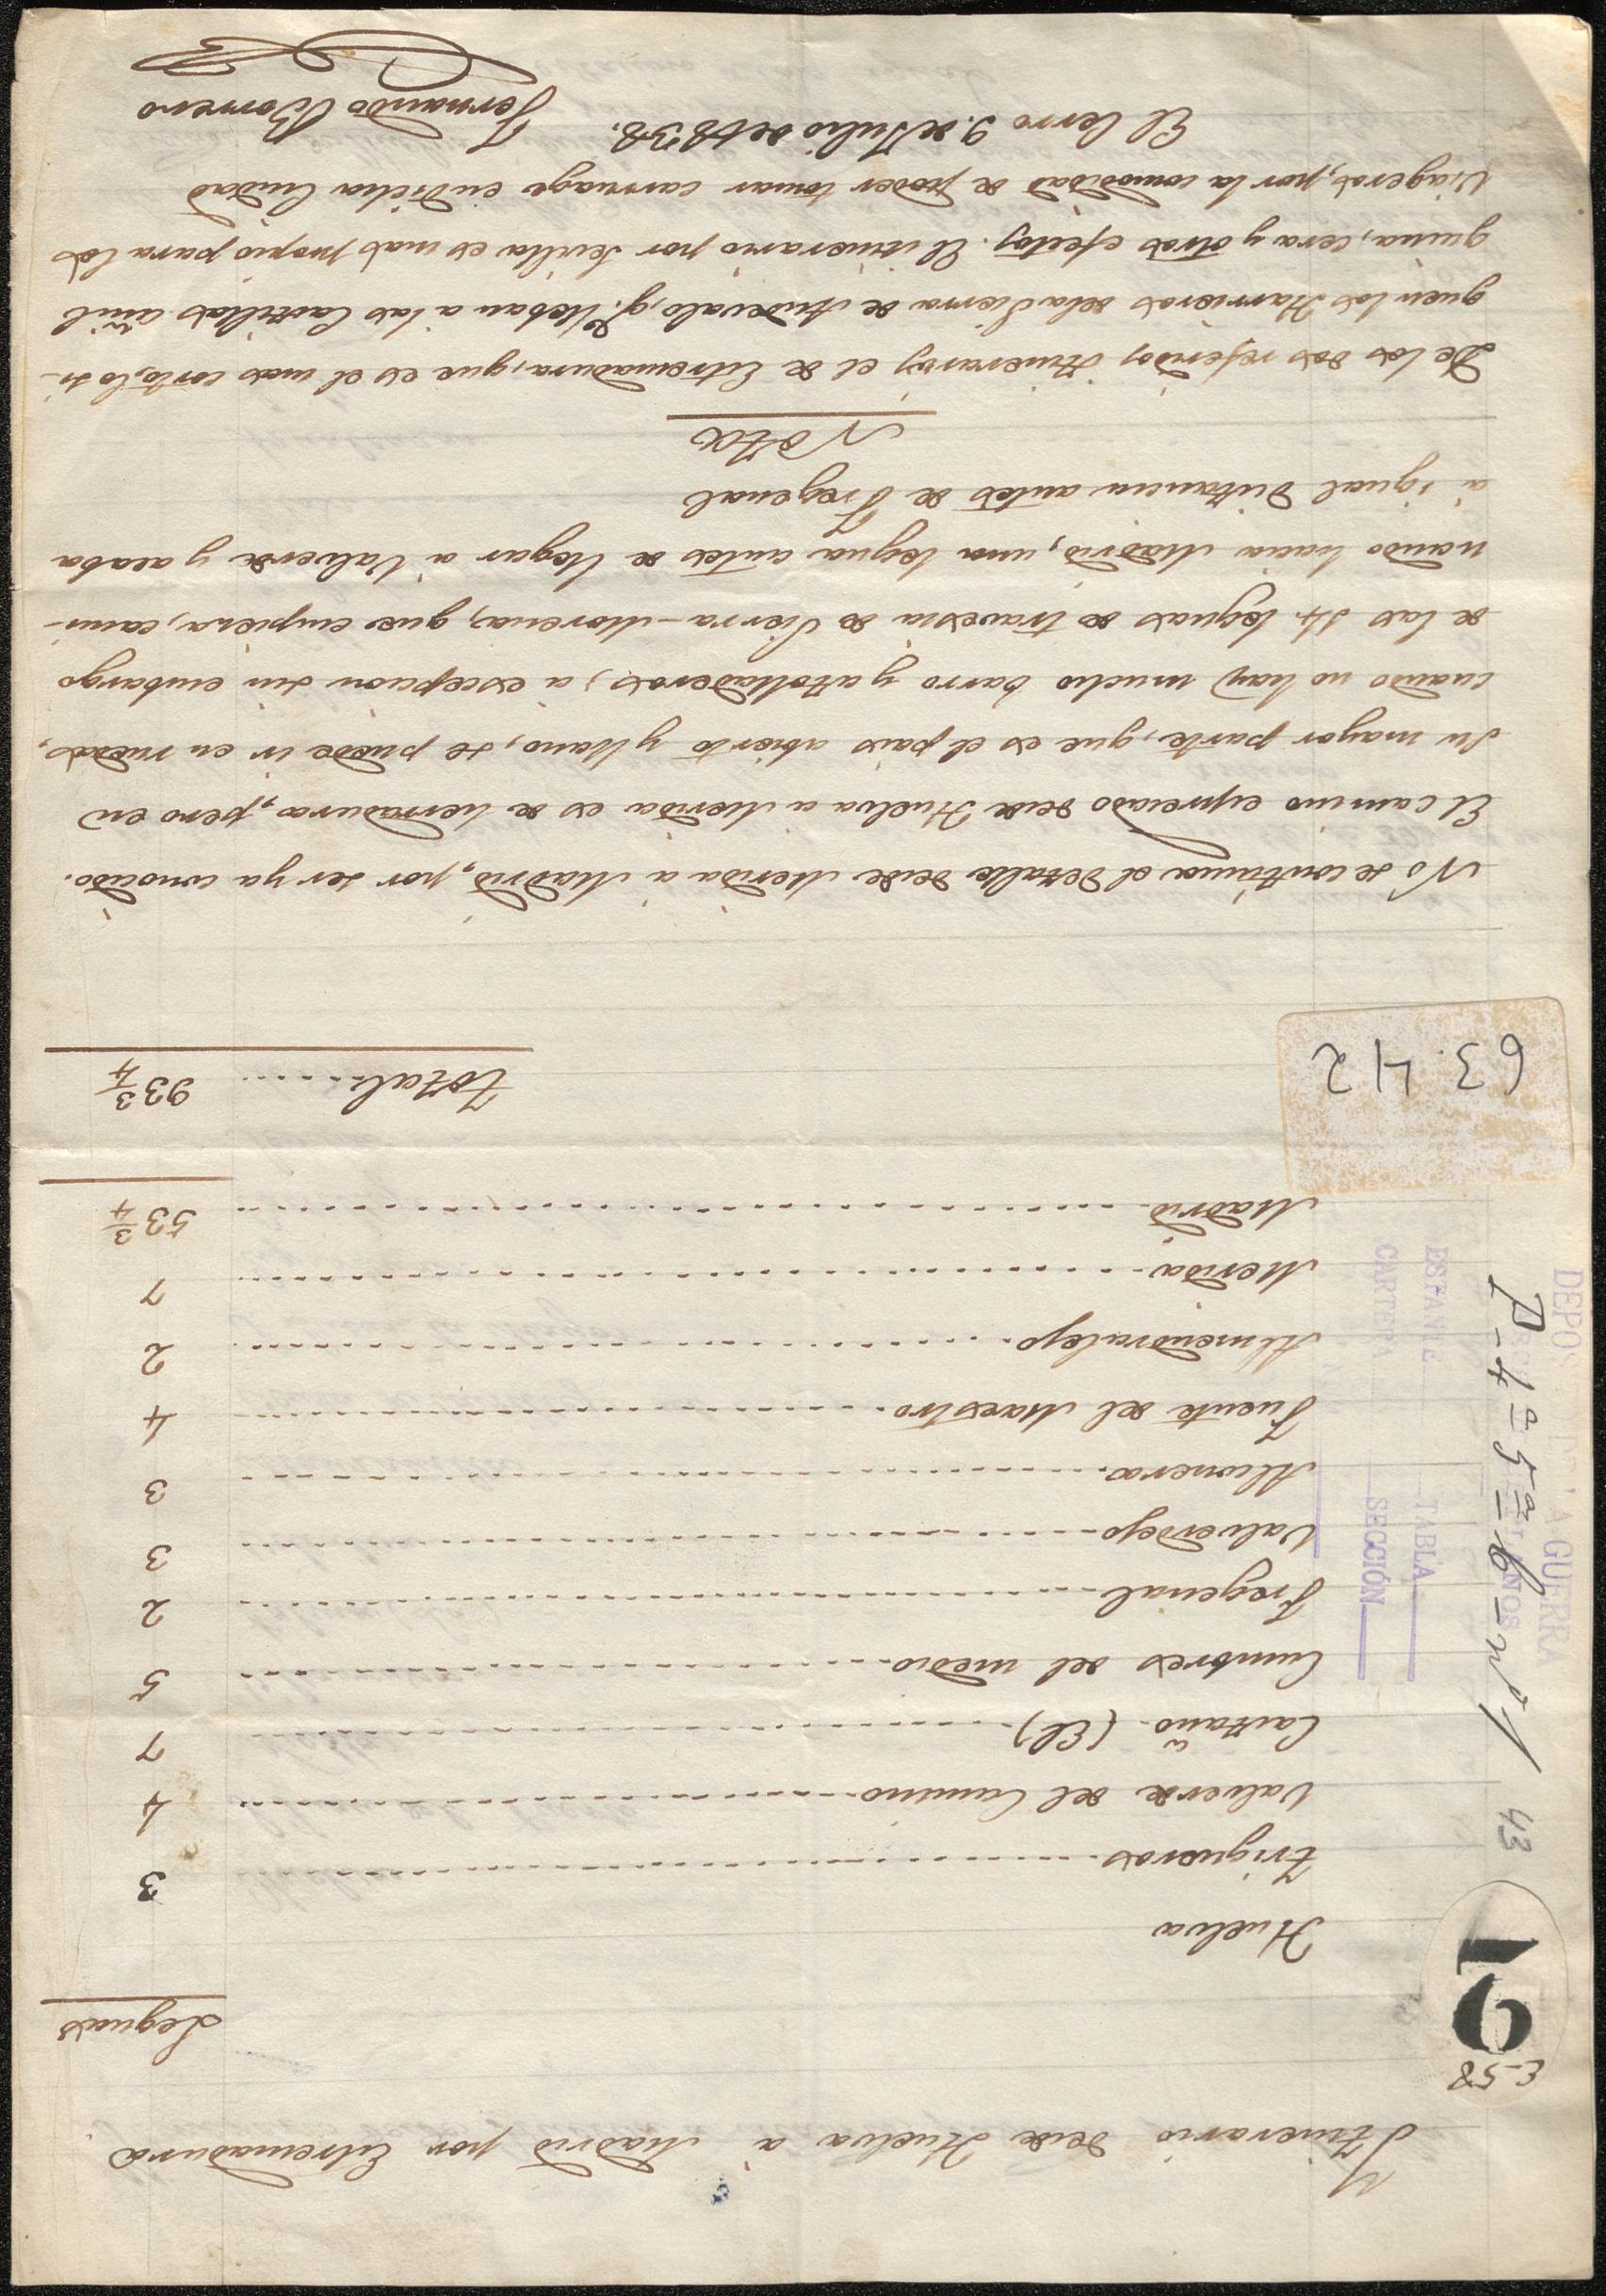 Itinerario desde Huelva à Madrid por Estremadura.
E-58
16
Leguas
Huelva
Trigueros 3
43
Valverde del Camino 4
Castaño (El) 7
Cumbres del medio 5
Fregenal 2
Valverdejo 3
Alconera 3
Fuente del Maestro 4
Almendralejo 2
Merida 7
Madrid 53 3/4
DEPOS LA GUERRA
P-4ª 5ª-b-nº1
ESTANTE TABLA
CARTERA SECCIÓN
total 93 3/4
63.42
No se continua el detalle desde Merida á Madrid, por ser ya conocido.
El camino espresado desde Huelva a Merida es de herradura, pero en
su mayor parte, que es el pais abierto y llano, se puede ir en ruedas,
cuando no hay mucho barro y atolladeros, a escepcion sin embargo
de las 14 leguas de travesia de Sierra-Morena, que empieza, cami-
nando hacia Madrid, una legua antes de llegar á Valverde y acaba
á igual distancia antes de Fregenal
Nota
De los dos referidos itinerarios el de Estremadura, que es el mas corto, lo si-
guen los Harrieros de la Sierra de Andevalo, q.e llevan a las Castillas añil
quina, cera y otros efectos. El itinerario por Sevilla es mas propio para los
viageros, por la comodidad de poder tomar carruage en dicha Ciudad
El Cerro 9. de Julio de 1838.
Fernando Borrero